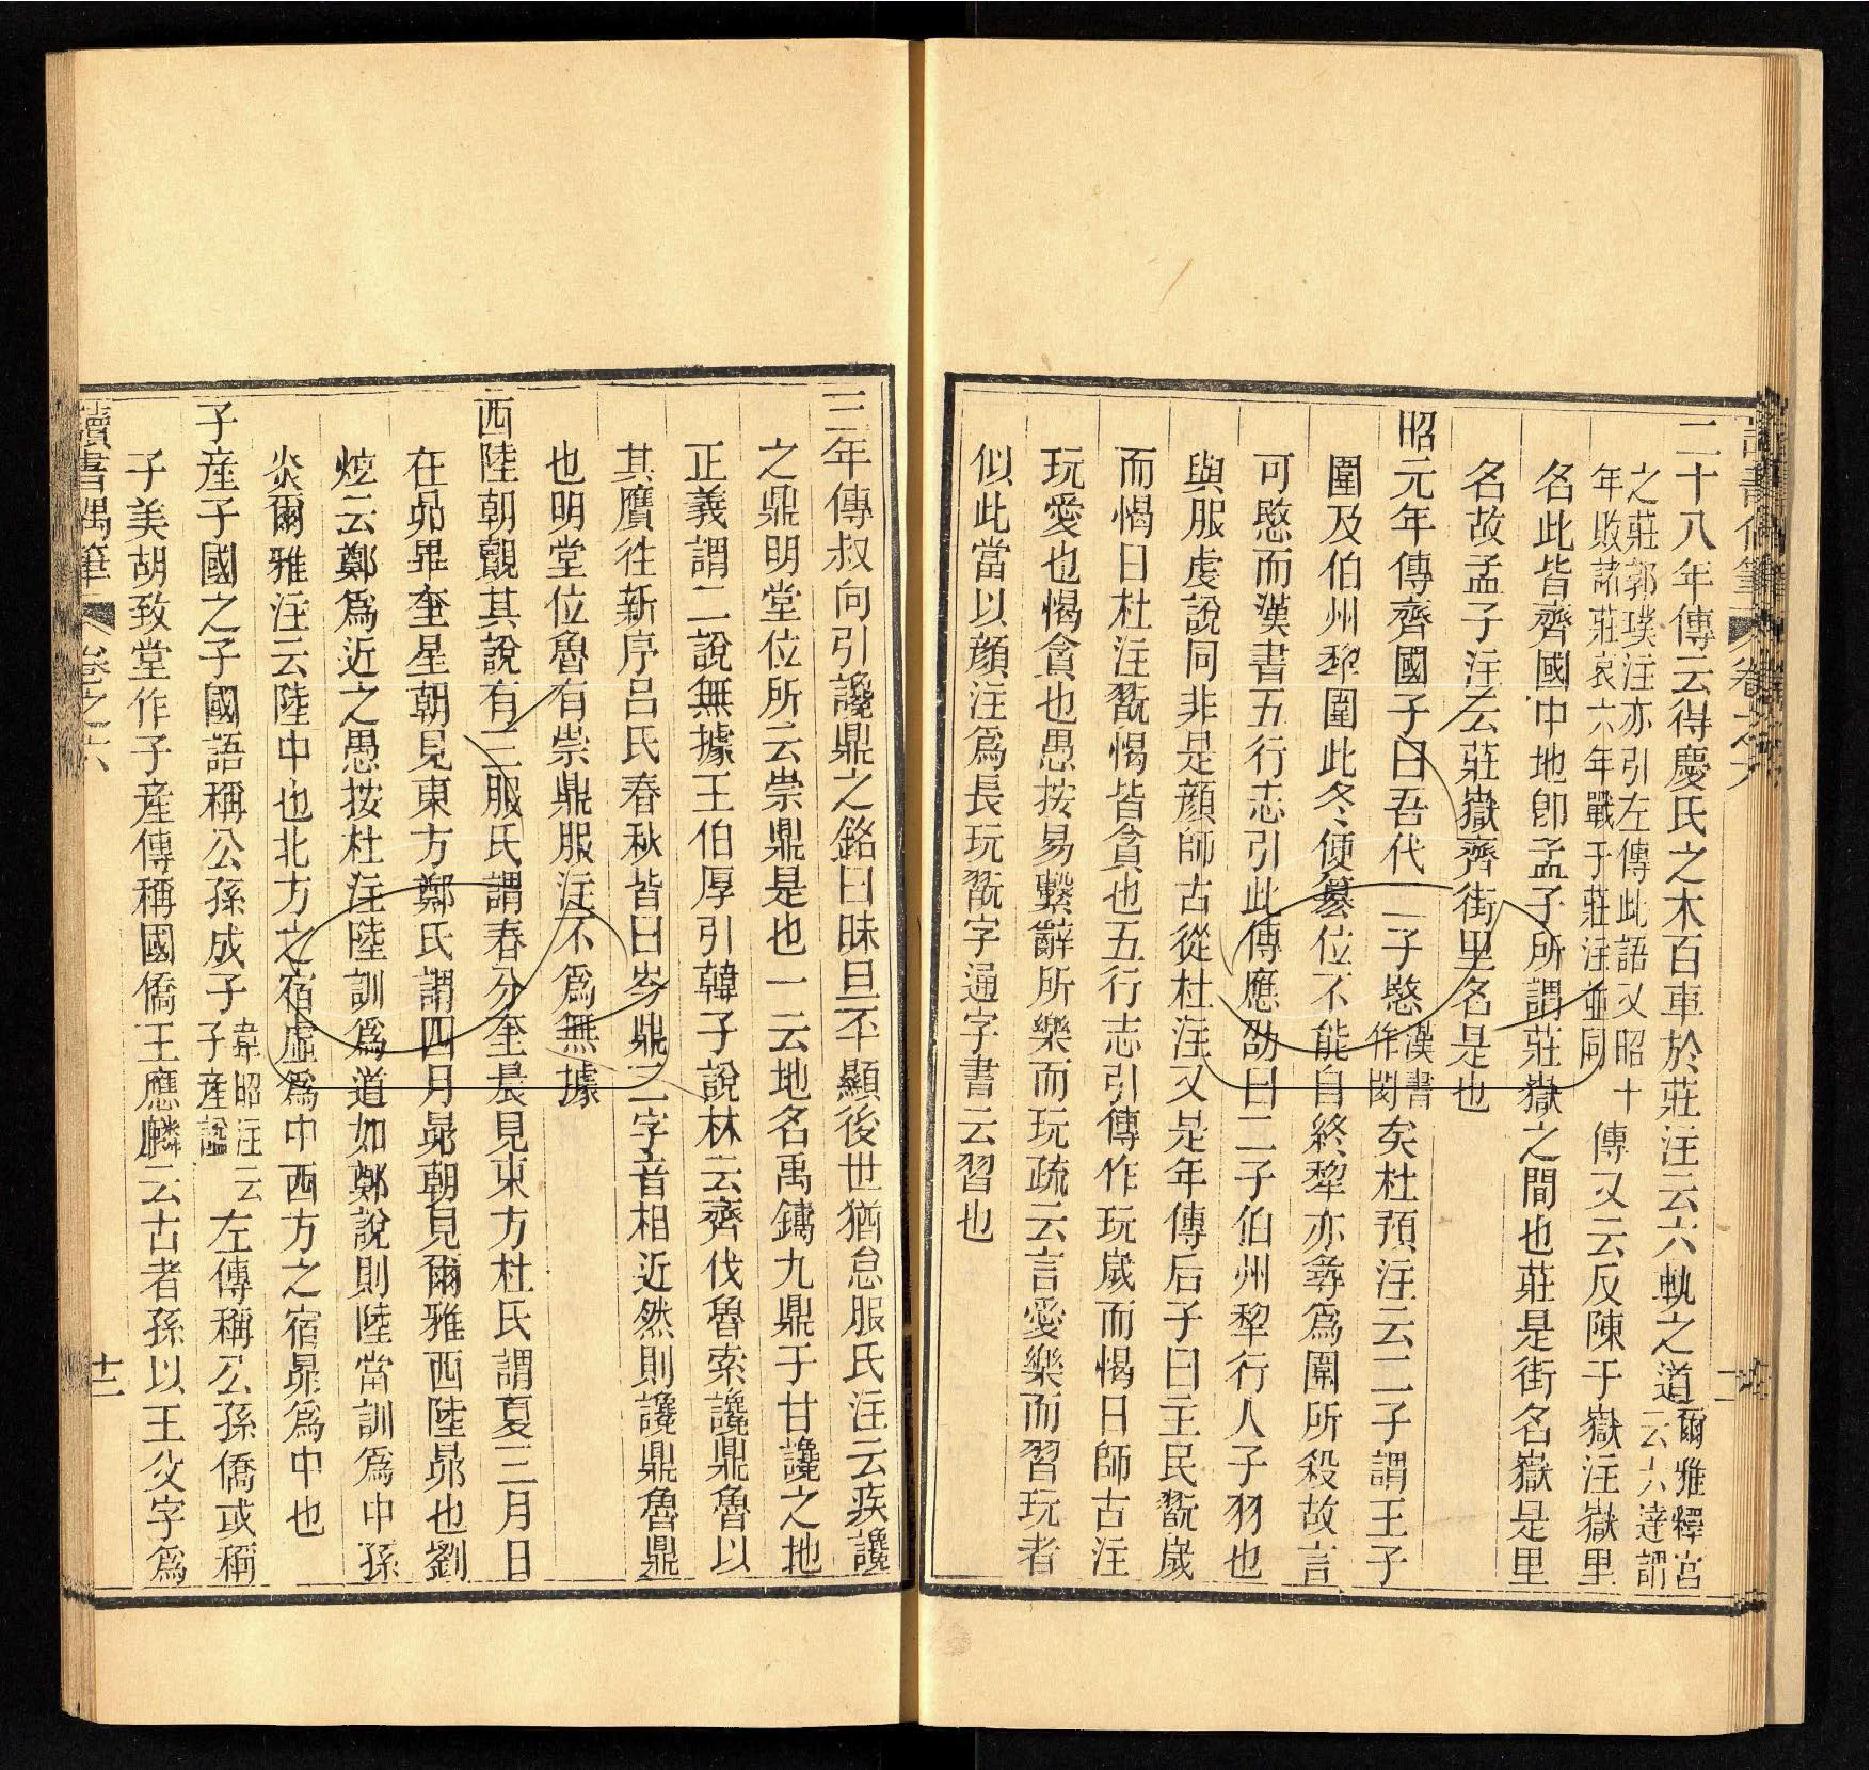 二十八年傳云得慶氏之木百車於莊注云六軌之道爾雅釋宮云六達謂
之莊郭璞注亦引左傳此語又昭十年敗諸莊哀六年戰于莊注並同傳又云反陳于嶽注嶽里
名此皆齊國中地卽孟子所謂莊嶽之間也莊是街名嶽是里
名故孟子注云莊嶽齊街里名是也
昭元年傳齊國子曰吾代二子愍漢書作閔矣杜預注云二子謂王子
圍及伯州犂圍此冬便簒位不能自終犂亦尋爲圍所殺故言
可愍而漢書五行志引此傳應劭曰二子伯州犂行人子羽也
與服虔說同非是顔師古從杜注又是年傳后子曰主民翫歲
而愒日杜注翫愒皆貪也五行志引傳作玩歲而愒日師古注
玩愛也愒貪也愚按易繫辭所樂而玩疏云言愛樂而習玩者
似此當以顔注爲長玩翫字通字書云習也
三年傳叔向引讒鼎之銘曰昧旦丕顯後世猶怠服氏注云疾讒
之鼎明堂位所云崇鼎是也一云地名禹鑄九鼎于甘讒之地
正義謂二說無據王伯厚引韓子說林云齊伐魯索讒鼎魯以
其贗往新序呂氏春秋皆曰岑鼎二字音相近然則讒鼎魯鼎
也明堂位魯有崇鼎服注不爲無據
西陸朝覿其說有三服氏謂春分奎晨見東方杜氏謂夏三月日
在昴畢奎星朝見東方鄭氏謂四月昴朝見爾雅西陸昴也劉
炫云鄭爲近之愚按杜注陸訓爲道如鄭說則陸當訓爲中孫
炎爾雅注云陸中也北方之宿虛爲中西方之宿昴爲中也
子産子國之子國語稱公孫成子韋昭注云子産諡左傳稱公孫僑或稱
子美胡致堂作子産傳稱國僑王應麟云古者孫以王父字爲
讀書偶筆 卷之六 十二